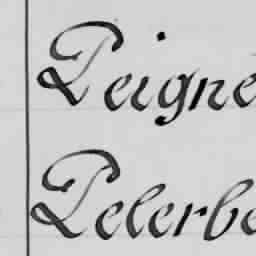 Peigne
Pelerbe